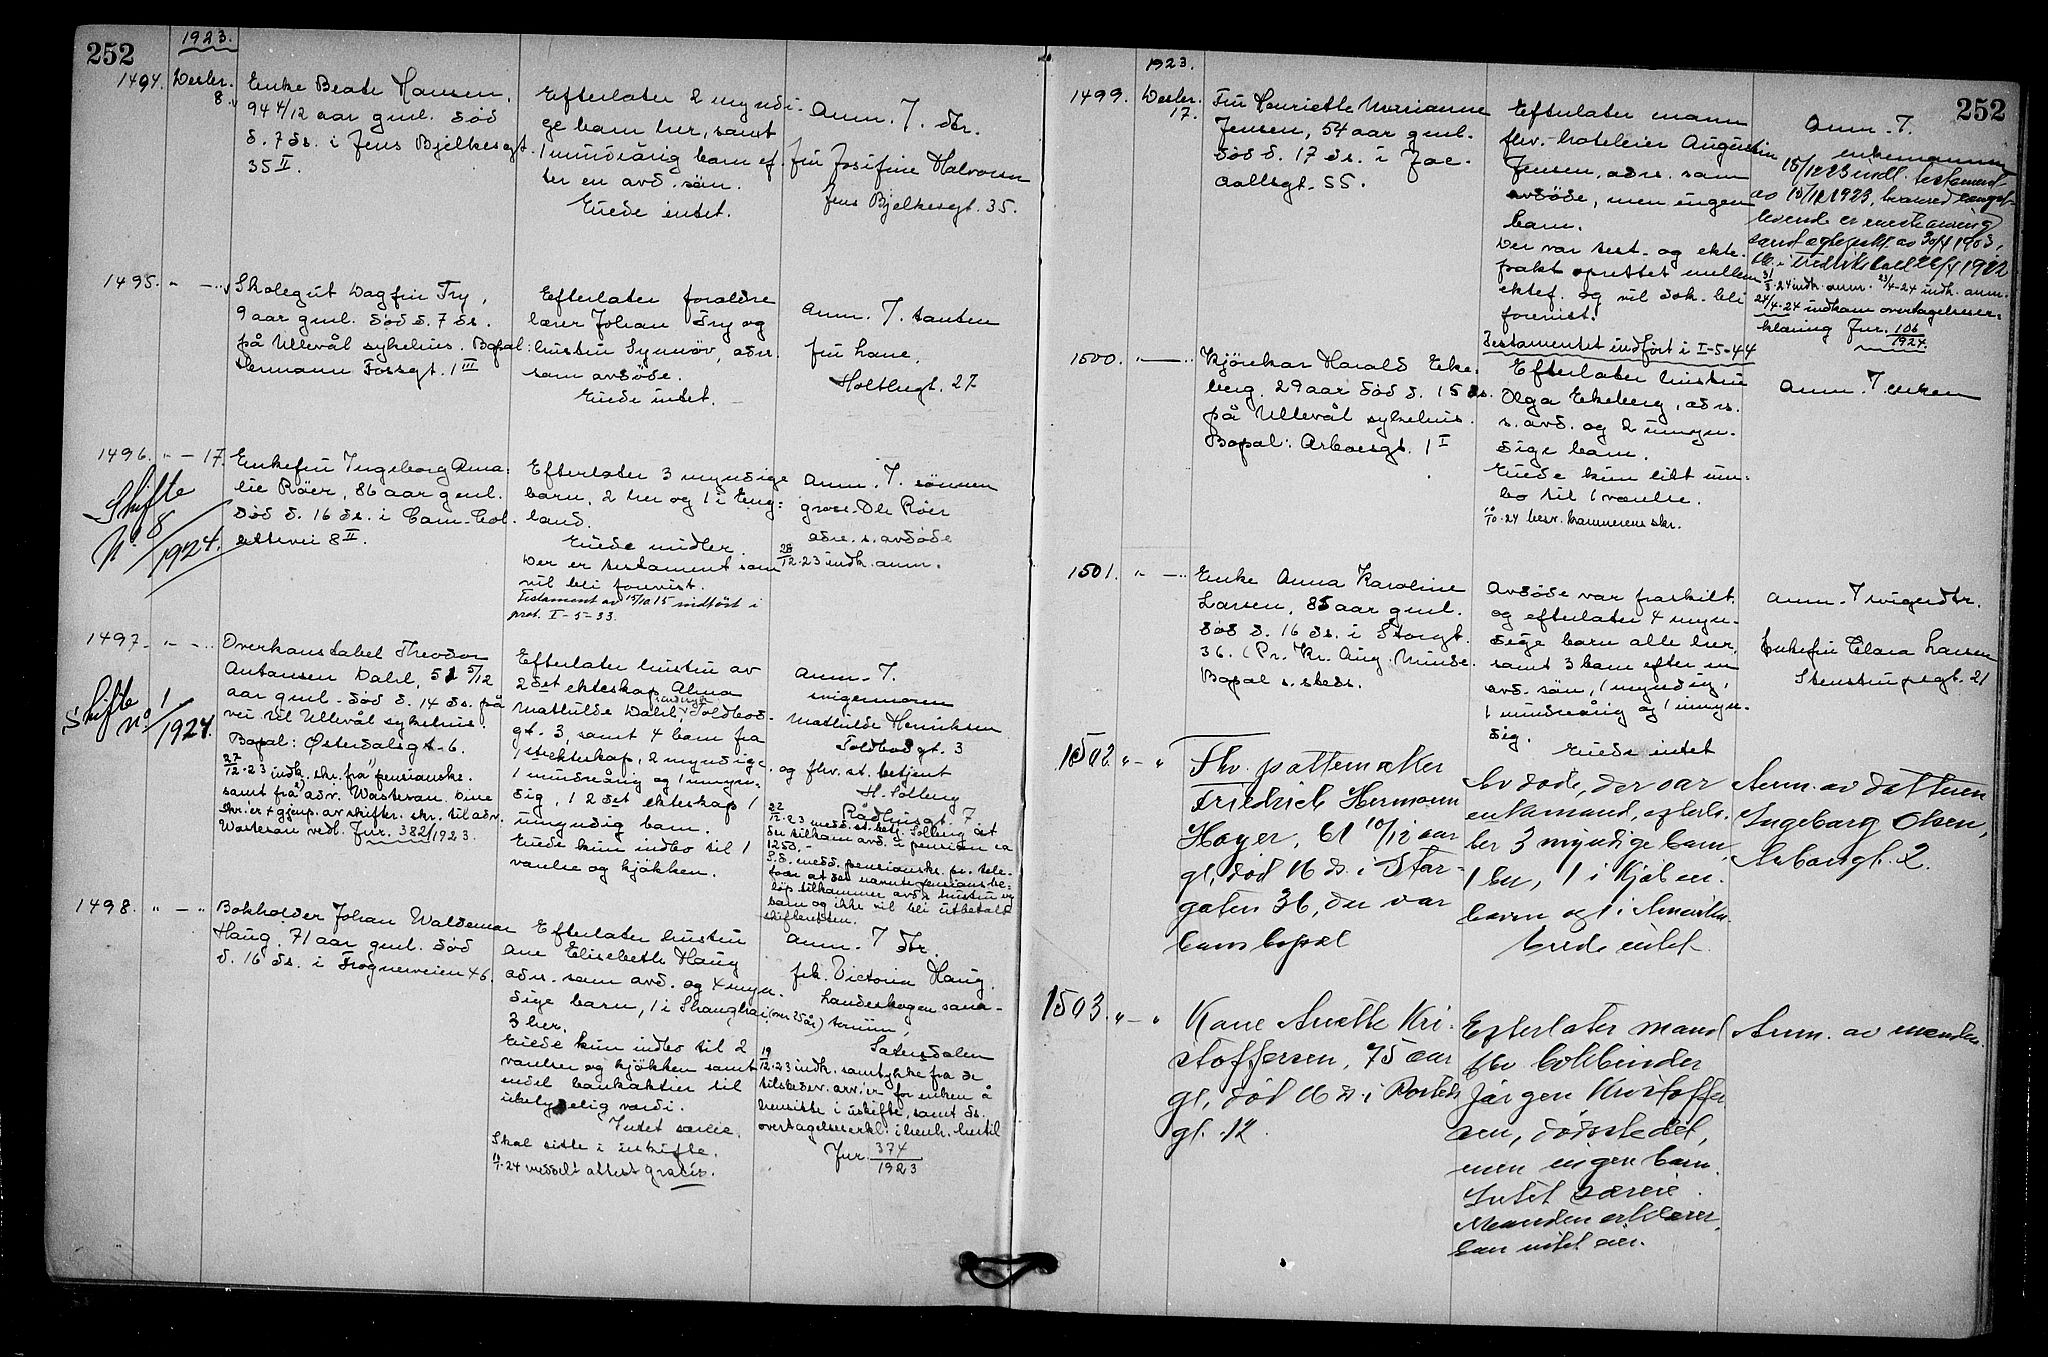 252
1923.
1494. Desbr. 8.
Enke Beate Hansen,
94 4/12 aar gml. død
d. 7 ds. i Jens Bjelkesgt.
35 II.
Efterlater 2 myndi-
ge barn her, samt
1 mindreårig barn ef
ter en avd. søn.
Eiede intet.
Anm. T. dtr.
fru Josefine Halvorsen
Jens Bjelkesgt. 35.
1495. " — "
Skolegut Dagfin Try,
9 aar gml. død d. 7 ds.
på Ullevål sykehus. Bopæl:
Hermann Fossgt. 1 III
Efterlater foraldre
lærer Johan Try og
hustru Synnøv, adr.
som avdøde.
Eiede intet.
Anm. T. tanten
fru Lane,
Holtegt. 27
1496. " — 17.
Skifte
N. 8/1924.
Enkefru Ingeborg Ama-
lie Røer, 86 aar gml.
død d. 16 ds. i Cam. Col-
lettsvei 8 II.
Efterlater 3 myndige
barn, 2 her og 1 i Eng-
land.
Eiede midler.
Der er testament som
vil bli forevist.
Testament av 15/10 15 indført i
prot. I-5-33.
Anm. T. sønnen
gross. Ole Røer
adr. s. avdøde
28/12-23 indk. anm.
1497. " — "
Skifte
No 1/1924.
Overkonstabel Theodor
Antonsen Dahl, 51 5/12
aar gml. død d. 14 ds. på
vei til Ullevål sykehus.
Bopæl: Østerdalsgt. 6.
27/12-23 indk. skr. fra pensionske.
samt fra adv. Wasteran. Dine
skr. er + gjenp. av skifter. skr. til adv.
Wasteran vedl. Jnr. 382/1923.
Efterlater hustru av
2det ekteskap Alma
Mathilde Dahl, Toldbod-
gt. 3, samt 4 barn fra
1ste ekteskap, 2 myndige,
1 mindreårig og 1 umyn-
dig, i 2det ekteskap 1
umyndig barn.
Eiede kun indbo til 1
værelse og kjøkken.
Anm. T.
svigermoren
Mathilde Henriksen
Toldbodgt. 3
og fhv. st. betjent
H. Solberg
Rådhusgt. 7.
22/12-23 medd. st. betj. Solberg at
du tilkom avd. i pension ca
1250.-
S.d. medd. pensionske. pr. tele-
fon at det nævnte pensionsbe-
løp tilkommer avd.s hustru og
barn og ikke vil bli utbetalt
skifteretten.
1498. " — "
Bokholder Johan Waldemar
Haug, 71 aar gml. død
d. 16 ds. i Frognerveien 46.
Efterlater hustru
Ane Elisebeth Haug
adr. som avd. og 4 myn-
dige barn, 1 i Shanghai, (over 25 år)
3 her.
Eiede kun indbo til 2
værelser og kjøkken samt
endel bankaktier til
ubetydelig værdi.
Intet særeie.
Skal sitte i uskifte.
11/1-24 meddelt attest gratis.
Anm. T dtr.
frk. Victoria Haug,
Landeskogen sana-
torium,
Sætersdalen
19/12-23 indk. samtykke fra de
tilstedev. arv.er for enken å
hensitte i uskifte, samt ds.
overtagelseserkl. i henh. hertil
Jnr. 374/1923
252
1923.
1499. Desbr. 17.
Fru Henriette Marianne
Jensen, 54 aar gml.
død d. 17 ds. i Jac.
Aallsgt. 55.
Efterlater mann
fhv. hoteleier Augustin
Jensen, adr. som
avdøde, men ingen
barn.
Der var test. og ekte-
pakt oprettet mellem
ektef. og vil dok. bli
forevist.
Testamentet indført i I-5-44
Anm. T.
enkemannen
18/12 23 indl. testament
av 15/12 1923, hvorved længst-
levende er eneste arving
samt egtepakt av 30/4 1903,
i Fredrikshald 26/4 1912
31/3-24 indk. anm. 23/4-24 indk. anm.
24/4-24 indkom overtagelseser-
klæring Jnr. 106/1924.
1500. " — "
Kjørekar Harald Eke-
berg, 29 aar død d. 15 ds.
på Ullevål sykehus.
Bopæl: Arboesgt. 1 I
Efterlater hustru
Olga Ekeberg, adr.
s. avd. og 2 umyn-
dige barn.
Eiede kun litt inn-
bo til 1 værelse.
11/10-24 besv. kæmnerens skr.
Anm. T enken
1501. " — "
Enke Anna Karoline
Larsen, 85 aar gml.
død d. 16 ds. i Storgt.
36. (Pr. Kr. Aug. Minde.
Bopæl s. steds.
Avdøde var fraskilt
og efterlater 4 myn-
dige barn alle her,
samt 3 barn efter en
avd. søn, 1 myndig,
1 mindreårig og 1 umyn-
dig.
Eiede intet
Anm. T svigerdtr.
Enkefru Clara Larsen
Stenstrupsgt. 21
1502 " — "
Fhv. pottemaker
Friedrich Hermann
Hoyer, 61 10/12 aar
gl, død 16 ds. i Stor-
gaten 36, der var
hans bopæl
Avdøde, der var
enkemand, efterla-
ter 3 myndige barn,
1 her, 1 i Kjøben-
havn og 1 i Amerika.
Eiede intet.
Anm. av datteren
Ingeborg Olsen,
Arboesgt. 2.
1503. " — "
Kone Anette Kri-
stoffersen, 75 aar
gl, død 16 ds. i Rosteds
gt. 12.
Efterlater mand
fhv bokbinder
Jørgen Kristoffer-
sen, dødstedet,
men ingen barn.
Intet særeie.
Manden erklærer,
han intet eier.
Anm. av manden